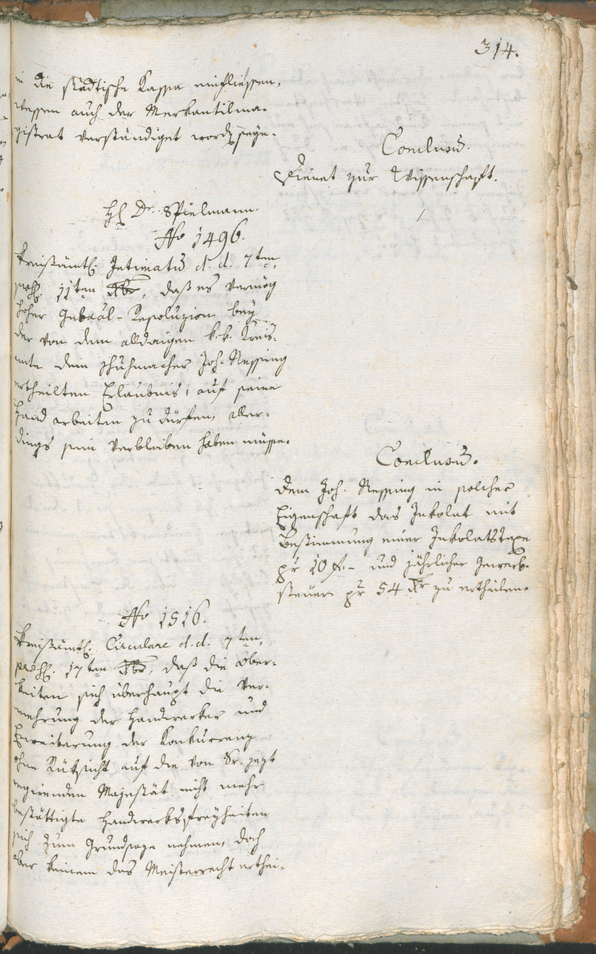 314.
in die städtische Kassa einfliessen,
wessen auch der Merkantilma-
gistrat verständiget word seye.
Conclusū.
Dienet zur Wissenschaft.
H Dr. Spielmann.
No 1496.
Kreißämtl. Intimatū d. d. 7ten,
11ten daß es vermög
hoher Gubāal-Resoluzion bey
der von dem alldaigen k. k. Kreis-
amte dem Schuhmacher Joh. Nepping
ertheilten Erlaubnis, auf seine
Hand arbeiten zu dürfen, aller-
dings sein Verbleiben haben müsse.
Conclusū.
Dem Joh. Nepping in solcher
Eigenschaft das Inkolat mit
Bestimmung einer Inkolatstaxe
pr 10 f. – und jährlicher Gewerb-
steuer pr 54 Xr zu ertheilen.
No 1516.
Kreißämtl. Circulare d. d. 7ten,
17ten daß die Ober-
keiten sich überhaupt die Ver-
mehrung der Handwerker und
Erweiterung der Konkurrenz
ohne Rüksicht auf die von Sr. jezt
regierenden Majestät nicht mehr
bestättigte Handwerksfreyheiten
sich zum Grundsaze nehmen, doch
aber keinem das Meisterrecht erthei-